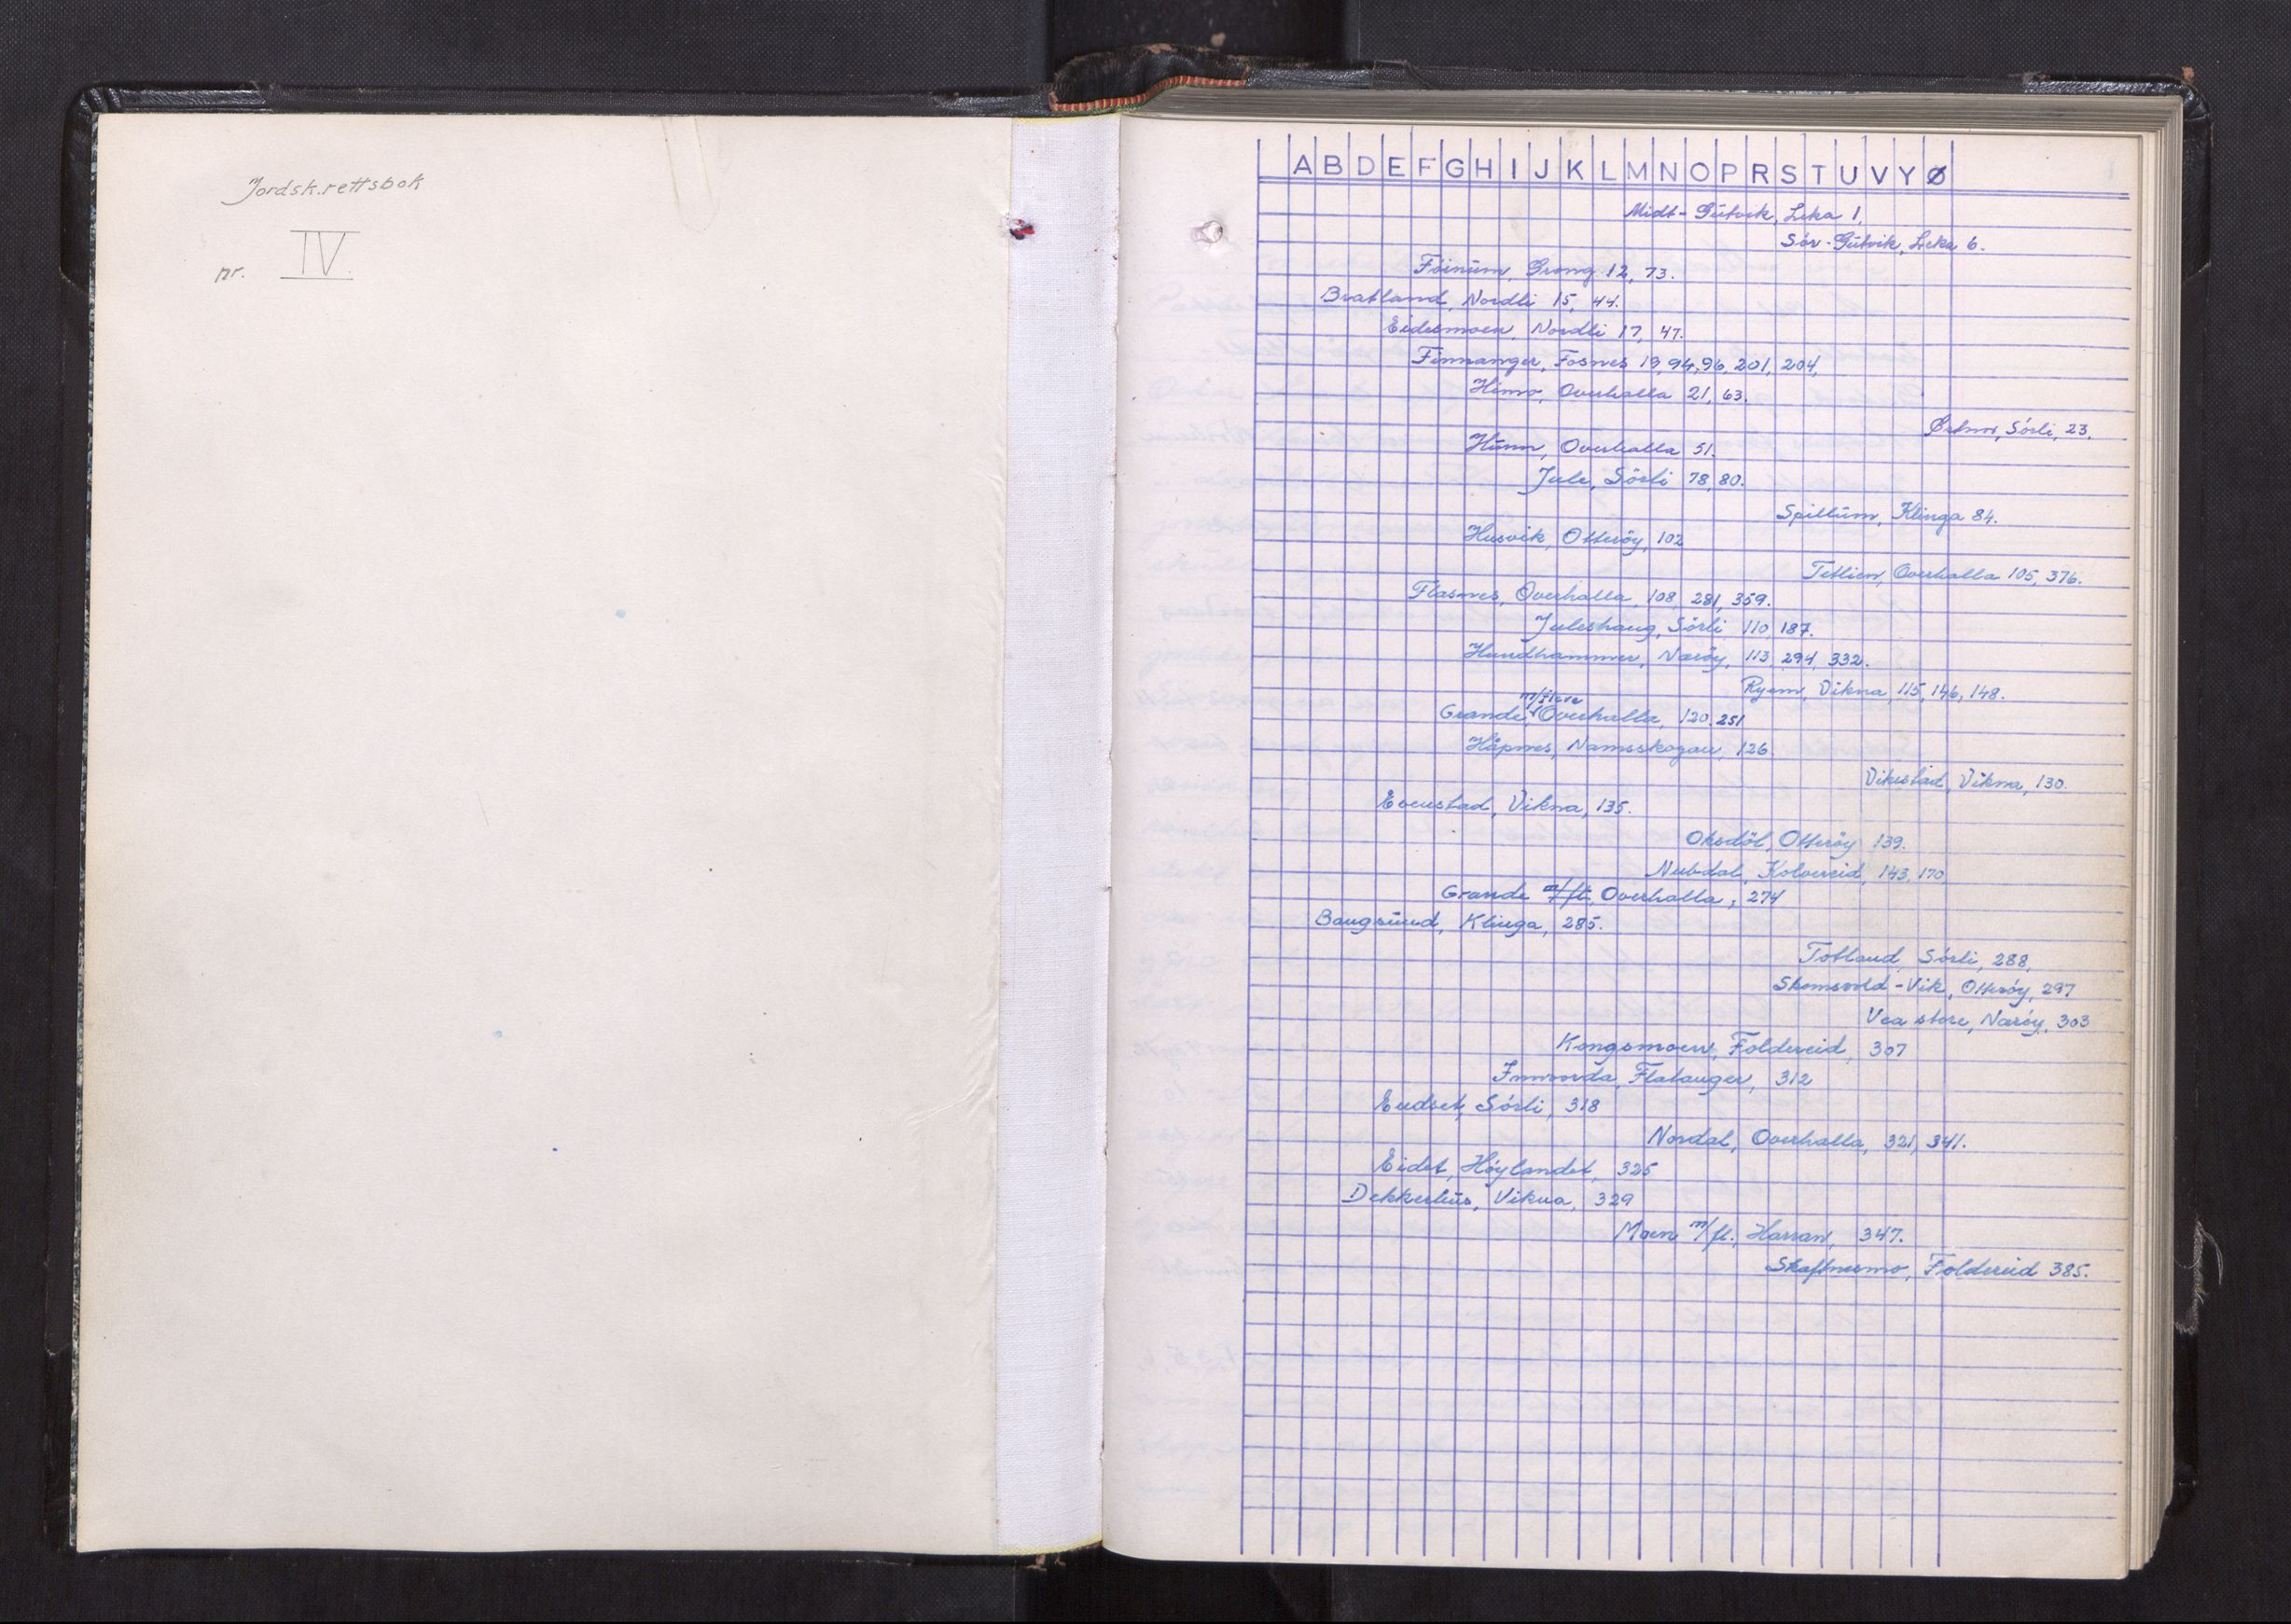 Jordsk.rettsbok
nr. IV.
A B D E F G H I J K L M N O P R S T U V Y Ø
Midt-Gutvik, Leka 1,
Sör-Gutvik, Leka 6.
Föinum, Grong 12, 73.
Bratland, Nordli 15, 44.
Eidesmoen, Nordli 17, 47.
Finnanger, Fosnes 19, 94, 96, 201, 204,
Himo, Overhalla 21, 63.
Sörli, 23,
Hunn, Overhalla 51.
Jule, Sörli 78, 80.
Spillum, Klinga 84.
Husvik, Otteröy, 102
Tetlien, Overhalla 105, 376.
Flasnes, Overhalla, 108, 281, 359.
Juleshaug, Sörli 110, 187.
Hundhammer, Näröy, 113, 294, 332.
Ryem, Vikna, 115, 146, 148.
m/flere
Grande, Overhalla, 120, 251
Håpnes, Namsskogan, 126.
Vikestad, Vikna, 130.
Evenstad, Vikna, 135.
Oksdöl, Otteröy 139.
Nubdal, Kolvereid, 143, 170
Grande m/fl., Overhalla, 274
Bangsund, Klinga, 285.
Totland, Sörli, 288,
Skomsvold-Vik, Otteröy, 297
Vea store, Näröy, 303
Kongsmoen, Foldereid, 307
Innvorda, Flatanger, 312
Eudset, Sörli, 318
Nordal, Overhalla, 321, 341.
Eidet, Höylandet, 325
Dekkerhus, Vikna, 329
Moen m/fl., Harran, 347.
Skaftnesmo, Foldereid 385.